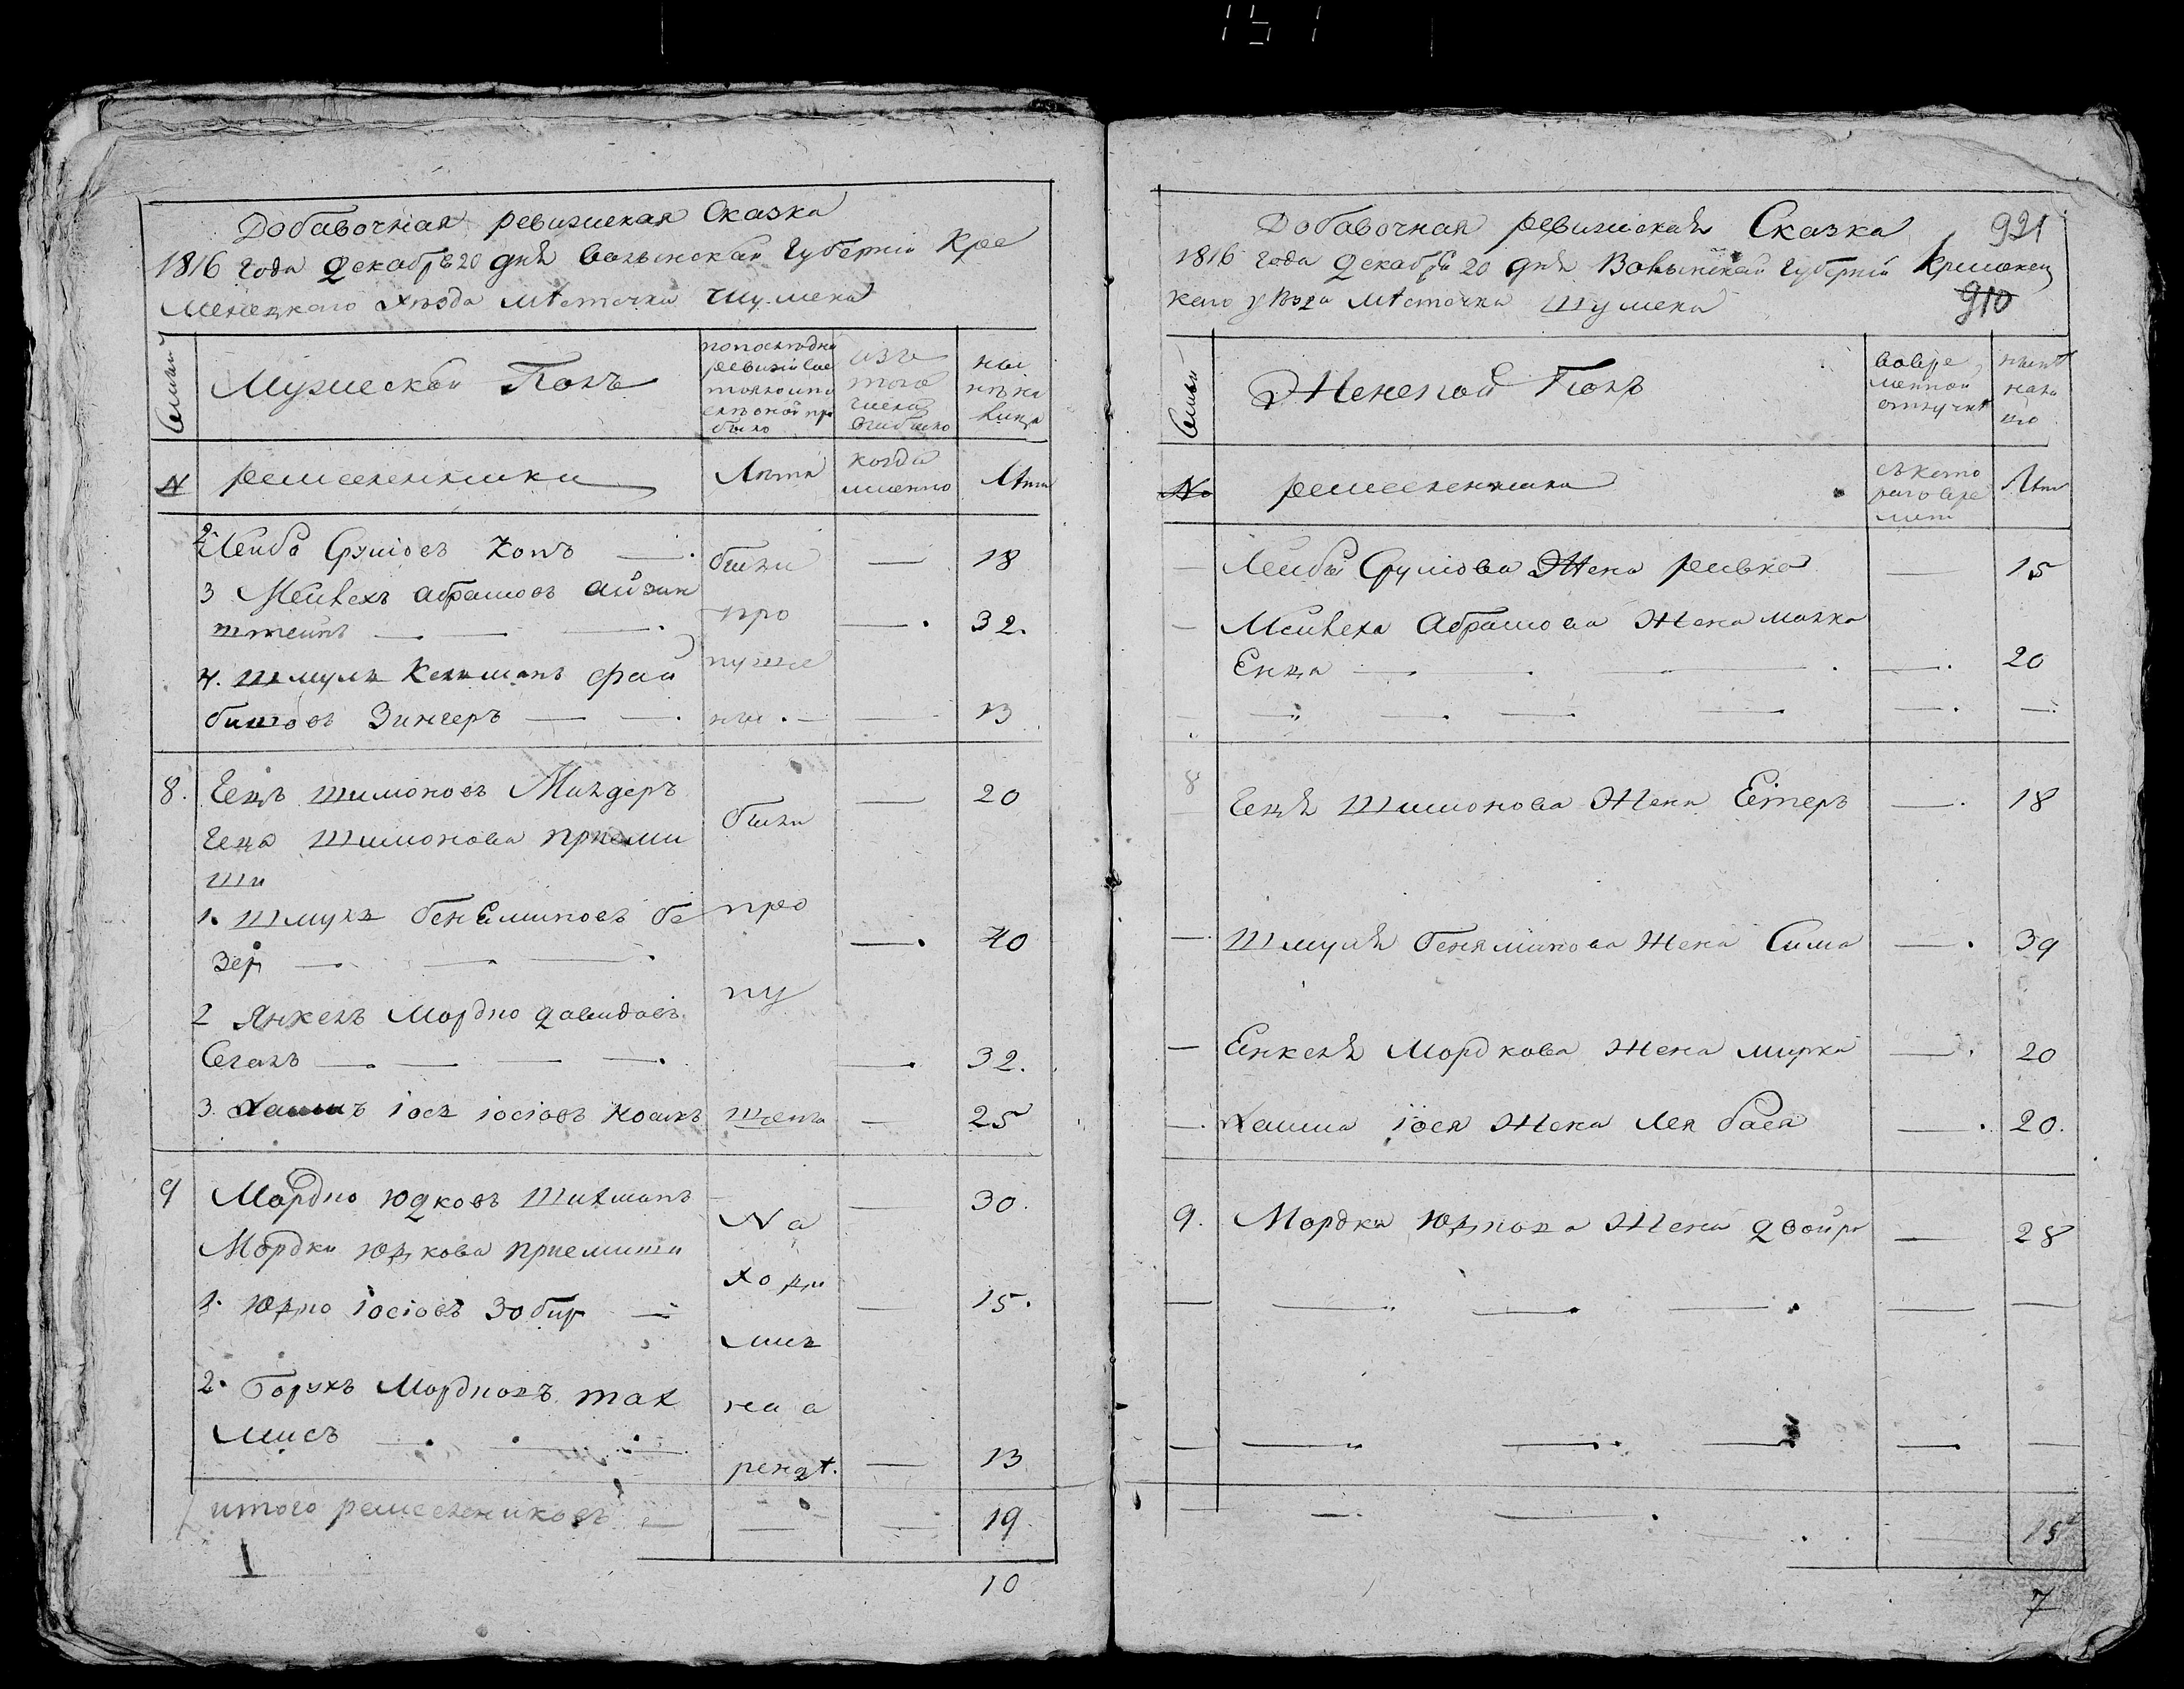 Добавочная ревизиская Сказка
1816 года декабря 20 дня Волынской Губерніи Кре
менецкаго уѣзда мѣстечка Шумска
Семьи
Мужеской Полъ
по последней
ревизіи
было
изъ
того
числа
выбыло
ны
нѣ на
лицо
№
ремесленники
Лѣта
когда
именно
Лѣта
2. Лейба Срулiовъ Копъ
были
18
3 Мейлехъ Абрамовъ Айзин
штейнъ
про
32.
4. Шмуль Кельманъ Фай
пуще
бишовъ Зингеръ
ны
13
8.
Гецъ Шимоновъ Миндеръ
20
Геца Шимонова приеми
ши
были
1. Шмуль Бениминовъ Бе
зер
про
40
2 Янкель Мордко Давидовъ
Сегалъ
пу
32.
3. Хаимъ Іось Іосіовъ
щены
25
9
Мордко Юдковъ Шихманъ
На
30.
Мордки Юдкова приемиши
1. Юдко Іосіовъ Зобир
ходи
15.
лись
2. Борухъ Мордковъ Так
мисъ
на а
рендѣ.
13
итого ремеслениковъ
19.
10
Добавочная ревизиская Сказка
921
1816 года декабря 20 дня Волынской Губерніи Кременец
каго уѣзда мѣстечка Шумска
910
Семьи
Женской Полъ
во вре
менной
отлучкѣ
нынѣ
на ли
цо
№
ремесленника
съ кото
раго вре
мени
Лѣта
Лейбы Срулiова Жена Ривка
15
Мейлеха Абрамова Жена Малка
Енца
20
8
Геця Шимонова Жена Естеръ
18
Шмуля Бениминова Жена Сима
39
Енкеля Мордкова Жена Мирка
20
Хаима Іося Жена Лея Бася
20.
9.
Мордка Юдкова Жена Двойра
28
15
7